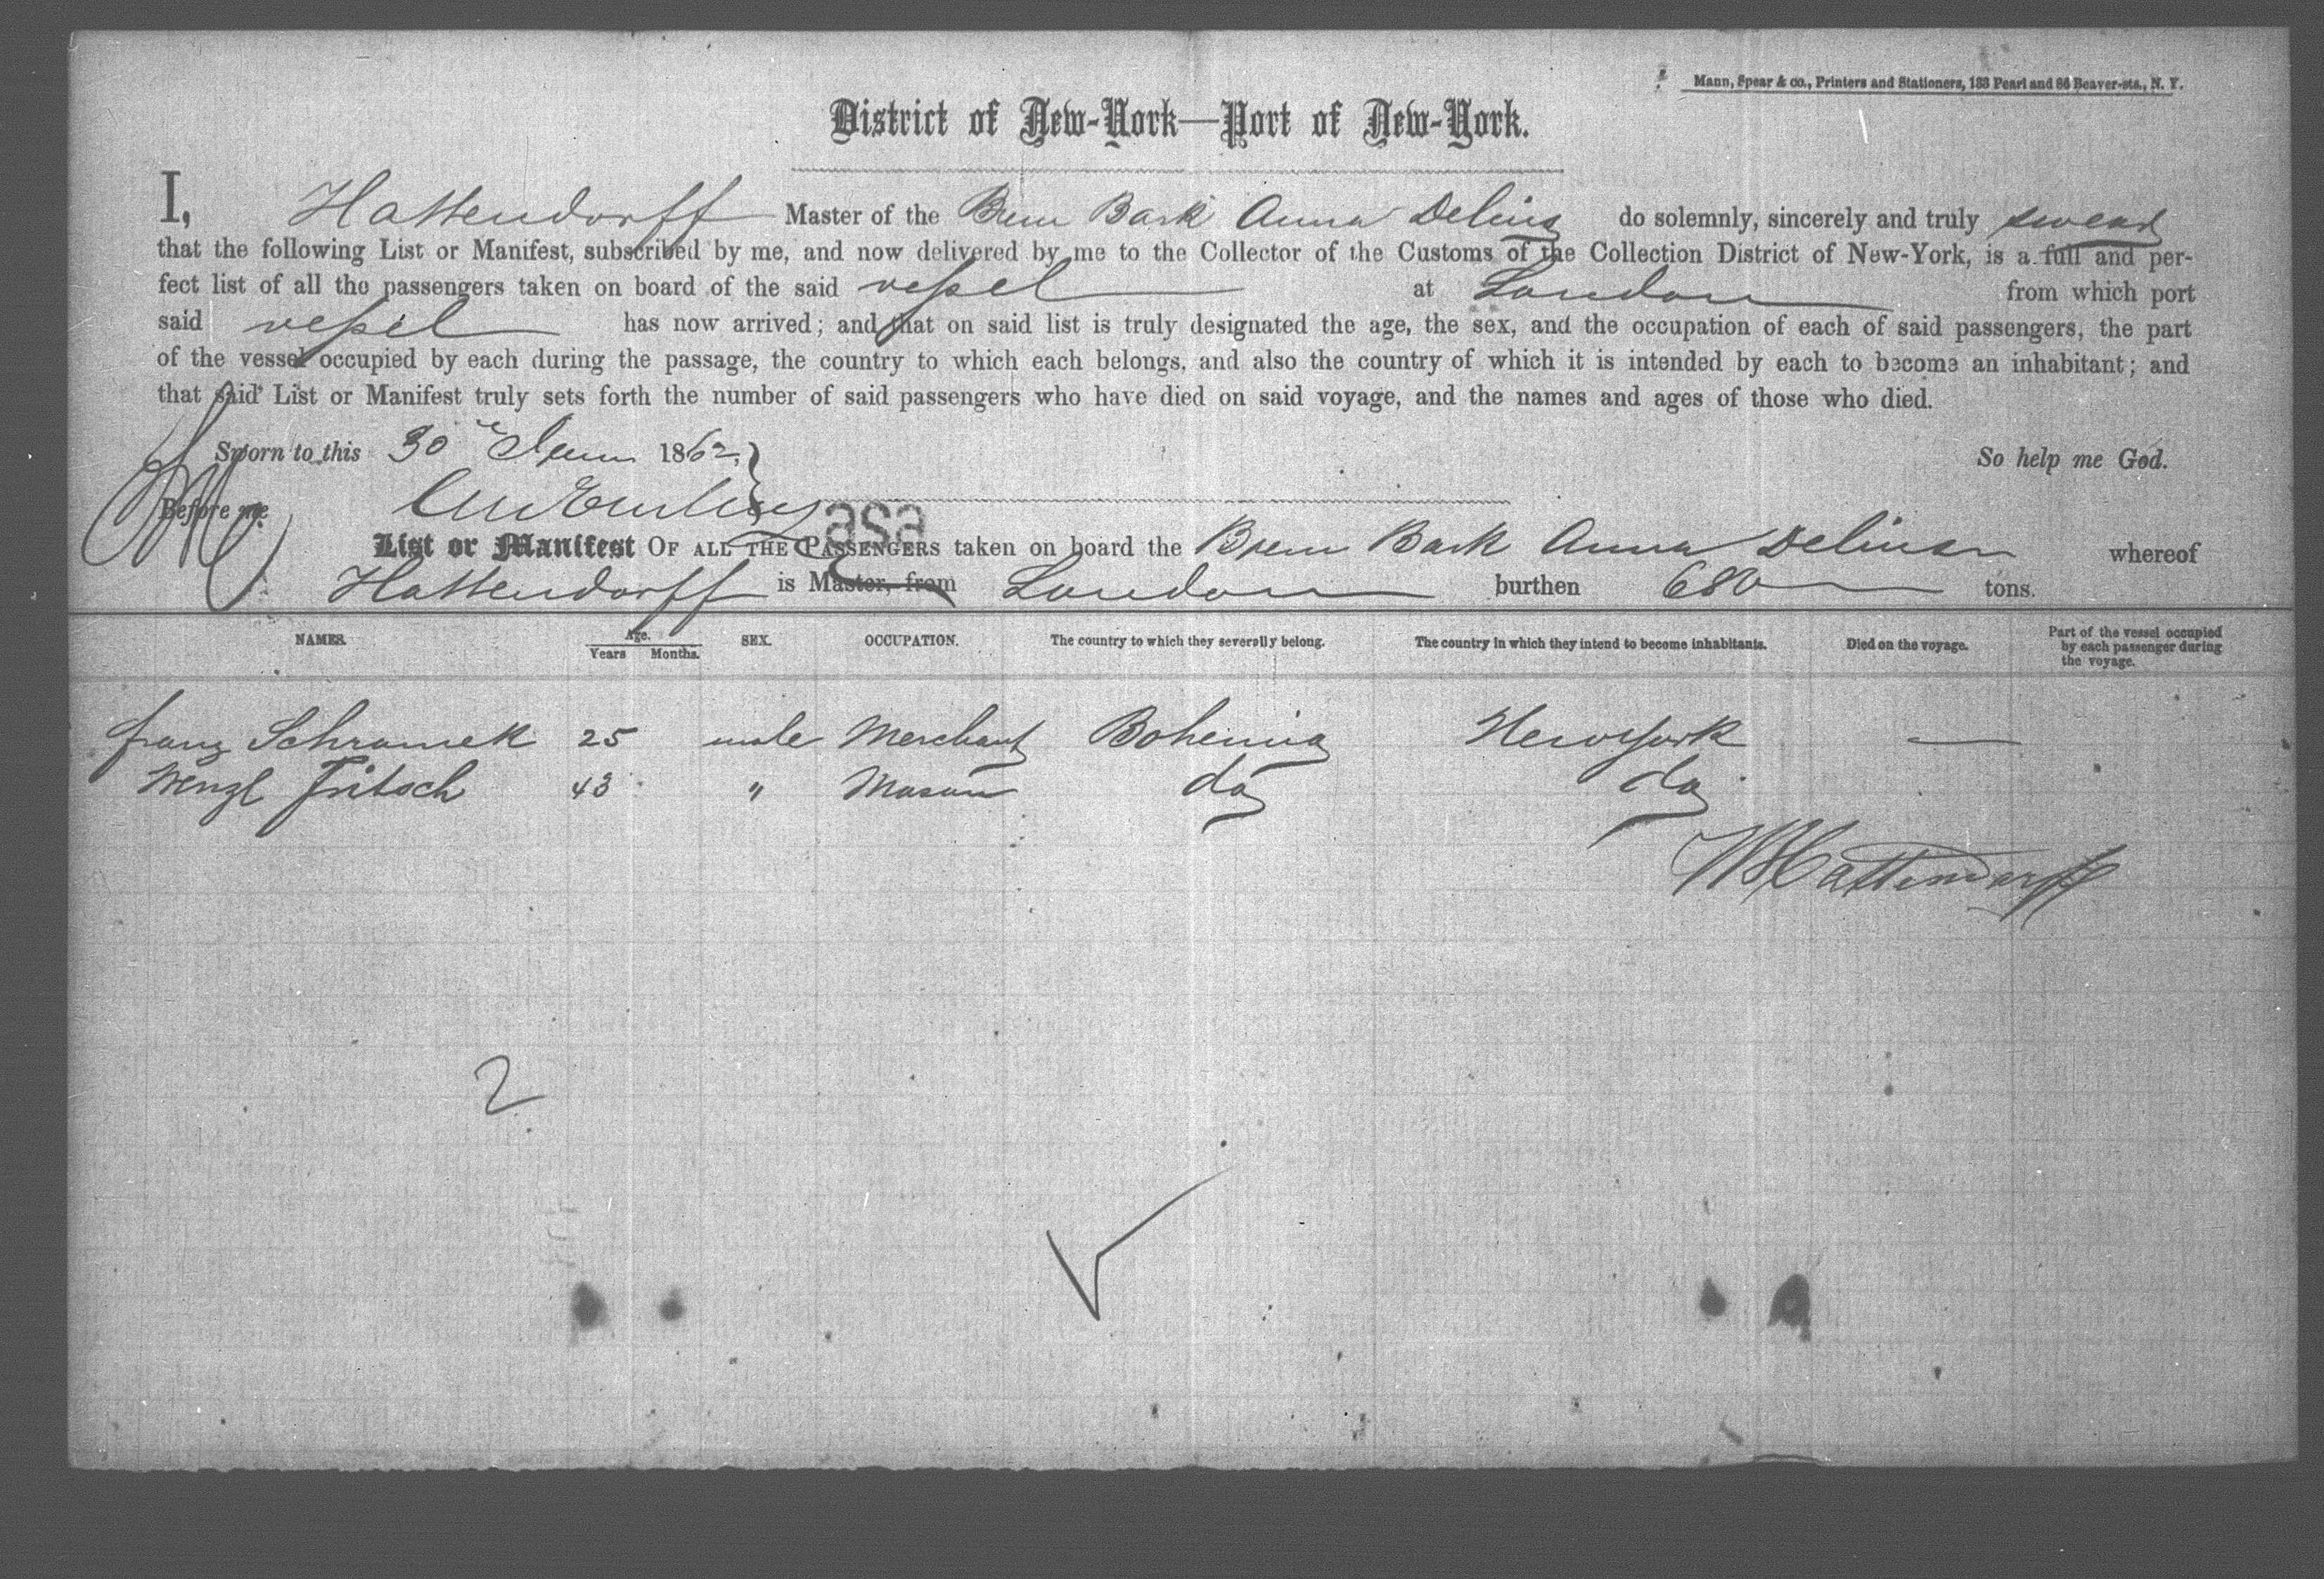 Mann, Spear & co., Printers and Stationers, 133 Pearl and 86 Beaver-sts., N. Y.
District of New-York—Port of New-York.
I, Hattendorff Master of the Brem Bark Anna Delius do solemnly, sincerely and truly swear
that the following List or Manifest, subscribed by me, and now delivered by me to the Collector of the Customs of the Collection District of New-York, is a full and per-
fect list of all the passengers taken on board of the said vessel at London from which port
said vessel has now arrived; and that on said list is truly designated the age, the sex, and the occupation of each of said passengers, the part
of the vessel occupied by each during the passage, the country to which each belongs, and also the country of which it is intended by each to become an inhabitant; and
that said List or Manifest truly sets forth the number of said passengers who have died on said voyage, and the names and ages of those who died.
Sworn to this 30 1862, So help me God.
Before me
asa
List or Manifest OF ALL THE PASSENGERS taken on board the Brem Bark Anna Delius whereof
Hattendorff is Master, from London burthen 680 tons.
NAMES. Age. Years Months. SEX. OCCUPATION. The country to which they severally belong. The country in which they intend to become inhabitants. Died on the voyage. Part of the vessel occupied by each passenger during the voyage.
Franz Schramek 25 male Merchant Bohemia New York —
Wenzl Fritsch 43 " Mason do do
W Hattendorff
2